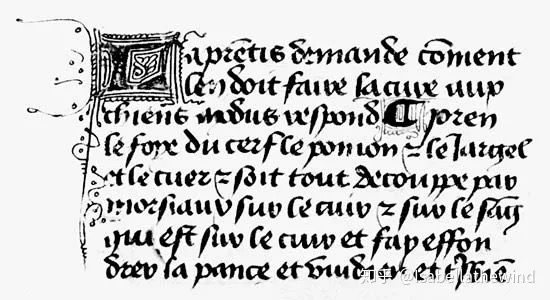 L aprētis demande cōment
len doit faire la cuire aux
chiens modus respond ¶ pren
le foye du cerf le pomon ⁊ le jargel
et le cuer ⁊ soit tout decouppe par
morsiaux sur le cuir ⁊ sur le sāg
qui est sur le cuir et fay effon
drer la pance et vuidier et
知乎 @Isabellathewind